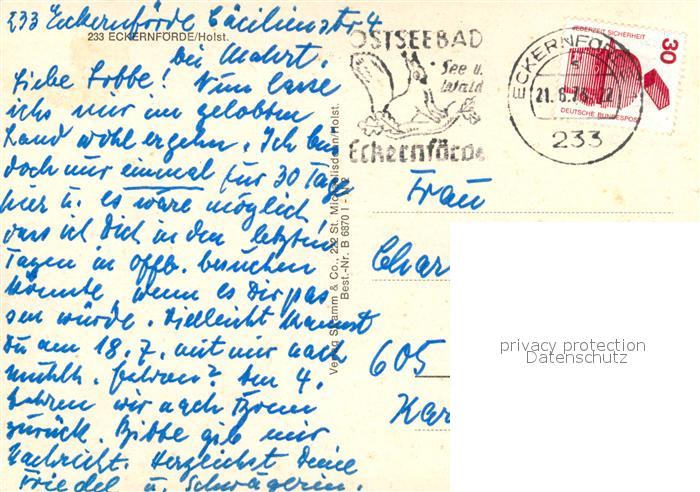 233 Eckernförde Cäcilienstr 4
233 ECKERNFÖRDE/Holst.
bei Mahrt.
Liebe Lobbe! Nun lasse
ichs mir im gelobten
Land wohl ergehen. Ich bin
doch nur einmal für 30 Tage
hier u. es wäre möglich
dass ich Dich in den letzten
Tagen in Offb. besuchen
könnte, wenn es Dir pas
sen würde. Vielleicht kannst
Du am 18.7. mit mir nach
Mühlh. fahren? Am 4.
fahren wir nach Bonn
zurück. Bitte gib mir
Nachricht. Herzlichst Deine
Friedel u. Schwägerin.
Verlag Schramm & Co., 222 St. Michaelisdonn/Holst.
Best.-Nr. B 6870 I -
OSTSEEBAD
See u.
Wald
Eckernförde
ECKERNFÖRDE
21.6.76
233
JEDERZEIT SICHERHEIT
30
DEUTSCHE BUNDESPOST
Frau
Char
605
privacy protection
Datenschutz